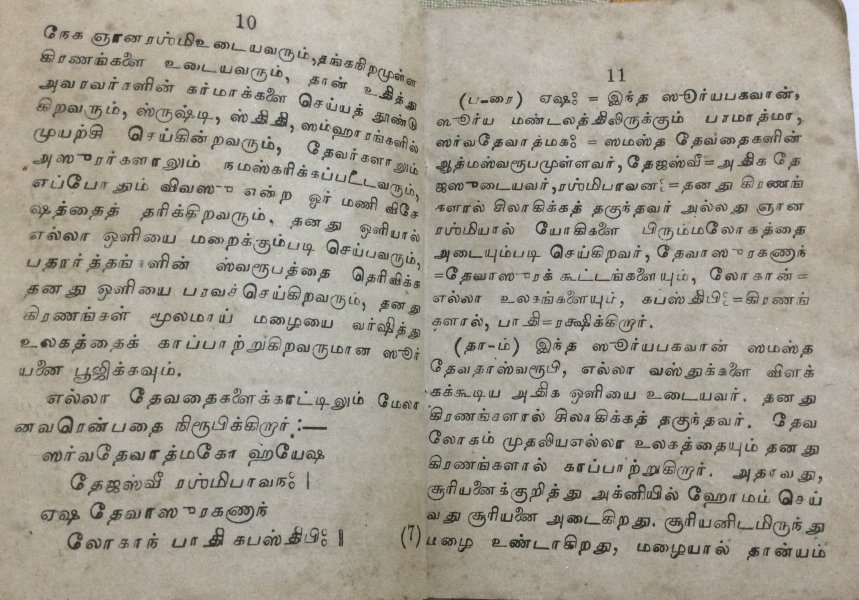 10
நேக ஞானரஶ்மிஉடையவரும், தங்கநிறமுள்ள
கிரணங்களை உடையவரும், தான் உதித்து
அவரவர்களின் கர்மாக்களை செய்யத் தூண்டு
கிறவரும், ஸ்ருஷ்டி, ஸ்திதி, ஸம்ஹாரங்களில்
முயற்சி செய்கின்றவரும், தேவர்களாலும்
அஸுரர்களாலும் நமஸ்கரிக்கப்பட்டவரும்,
எப்போதும் விவஸு என்ற ஓர் மணி விசே
ஷத்தைத் தரிக்கிறவரும். தனது ஒளியால்
எல்லா ஒளியை மறைக்கும்படி செய்பவரும்,
பதார்த்தங்களின் ஸ்வரூபத்தை தெரிவிக்க
தனது ஒளியை பரவச்செய்கிறவரும், தனது
கிரணங்கள் மூலமாய் மழையை வர்ஷித்து
உலகத்தைக் காப்பாற்றுகிறவருமான ஸூர்
யனை பூஜிக்கவும்.
எல்லா தேவதைகளைக்காட்டிலும் மேலா
னவரென்பதை நிரூபிக்கிறார் :—
ஸர்வதேவாத்மகோ ஹ்யேஷ
தேஜஸ்வீ ரஶ்மிபாவநஃ |
ஏஷ தேவாஸுரகணாந்
லோகாந் பாதி கபஸ்திபிஃ ‖ (7)
11
(ப-ரை) ஏஷஃ = இந்த ஸூர்யபகவான்,
ஸூர்ய மண்டலத்திலிருக்கும் பரமாத்மா,
ஸர்வதேவாத்மகஃ = ஸமஸ்த தேவதைகளின்
ஆத்மஸ்வரூபமுள்ளவர், தேஜஸ்வீ=அதிக தே
ஜஸுடையவர், ரஶ்மிபாவனஃ=தனது கிரணங்
களால் சிலாகிக்கத் தகுந்தவர் அல்லது ஞான
ரஶ்மியால் யோகிகளை பிரும்மலோகத்தை
அடையும்படி செய்கிறவர், தேவாஸுரகணான்
=தேவாஸுரக் கூட்டங்களையும், லோகான்=
எல்லா உலகங்களையும், கபஸ்திபிஃ=கிரணங்
களால், பாதி=ரக்ஷிக்கிறார்.
(தா-ம்) இந்த ஸூர்யபகவான் ஸமஸ்த
தேவதாஸ்வரூபி, எல்லா வஸ்துக்களை விளக்
கக்கூடிய அதிக ஒளியை உடையவர். தனது
கிரணங்களால் சிலாகிக்கத் தகுந்தவர். தேவ
லோகம் முதலியஎல்லா உலகத்தையும் தனது
கிரணங்களால் காப்பாற்றுகிறார். அதாவது,
சூரியனைக்குறித்து அக்னியில் ஹோமம் செய்
வது சூரியனை அடைகிறது. சூரியனிடமிருந்து
மழை உண்டாகிறது, மழையால் தான்யம்